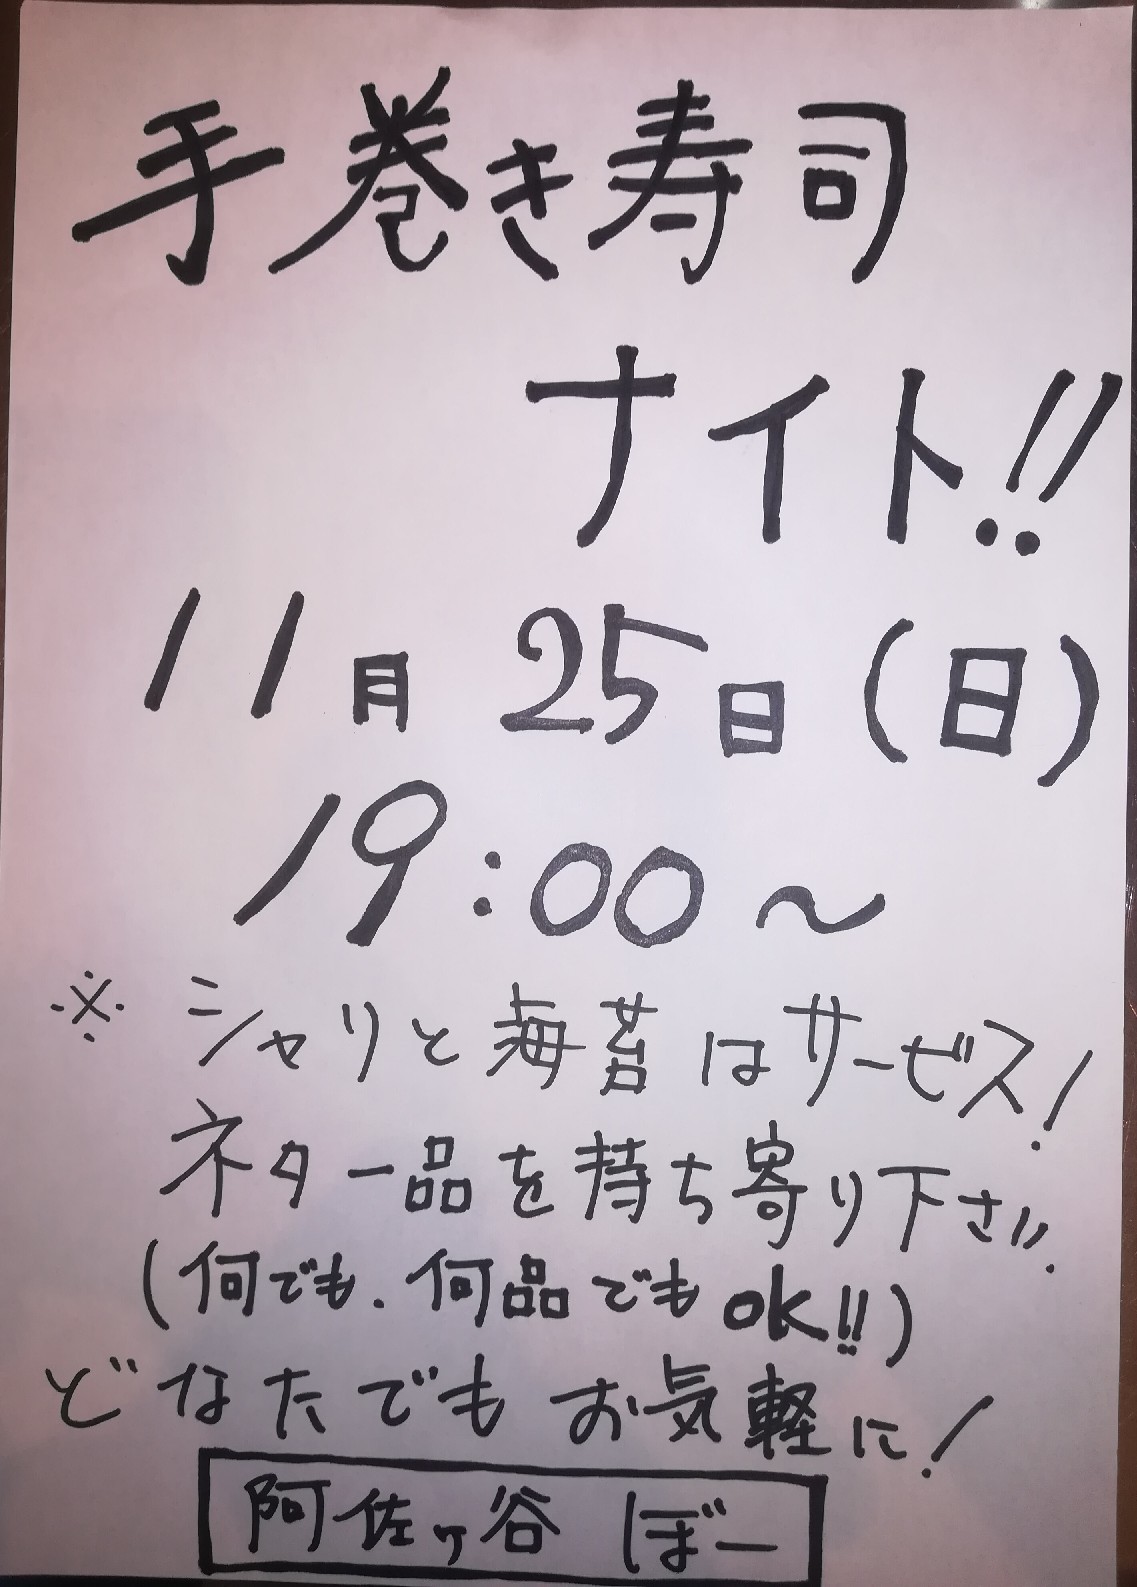 手巻き寿司
ナイト!!
11月 25日(日)
19:00～
※ シャリと海苔はサービス!
ネタ一品を持ち寄り下さい.
(何でも.何品でもOK!!)
どなたでもお気軽に!
阿佐ヶ谷 ぼー